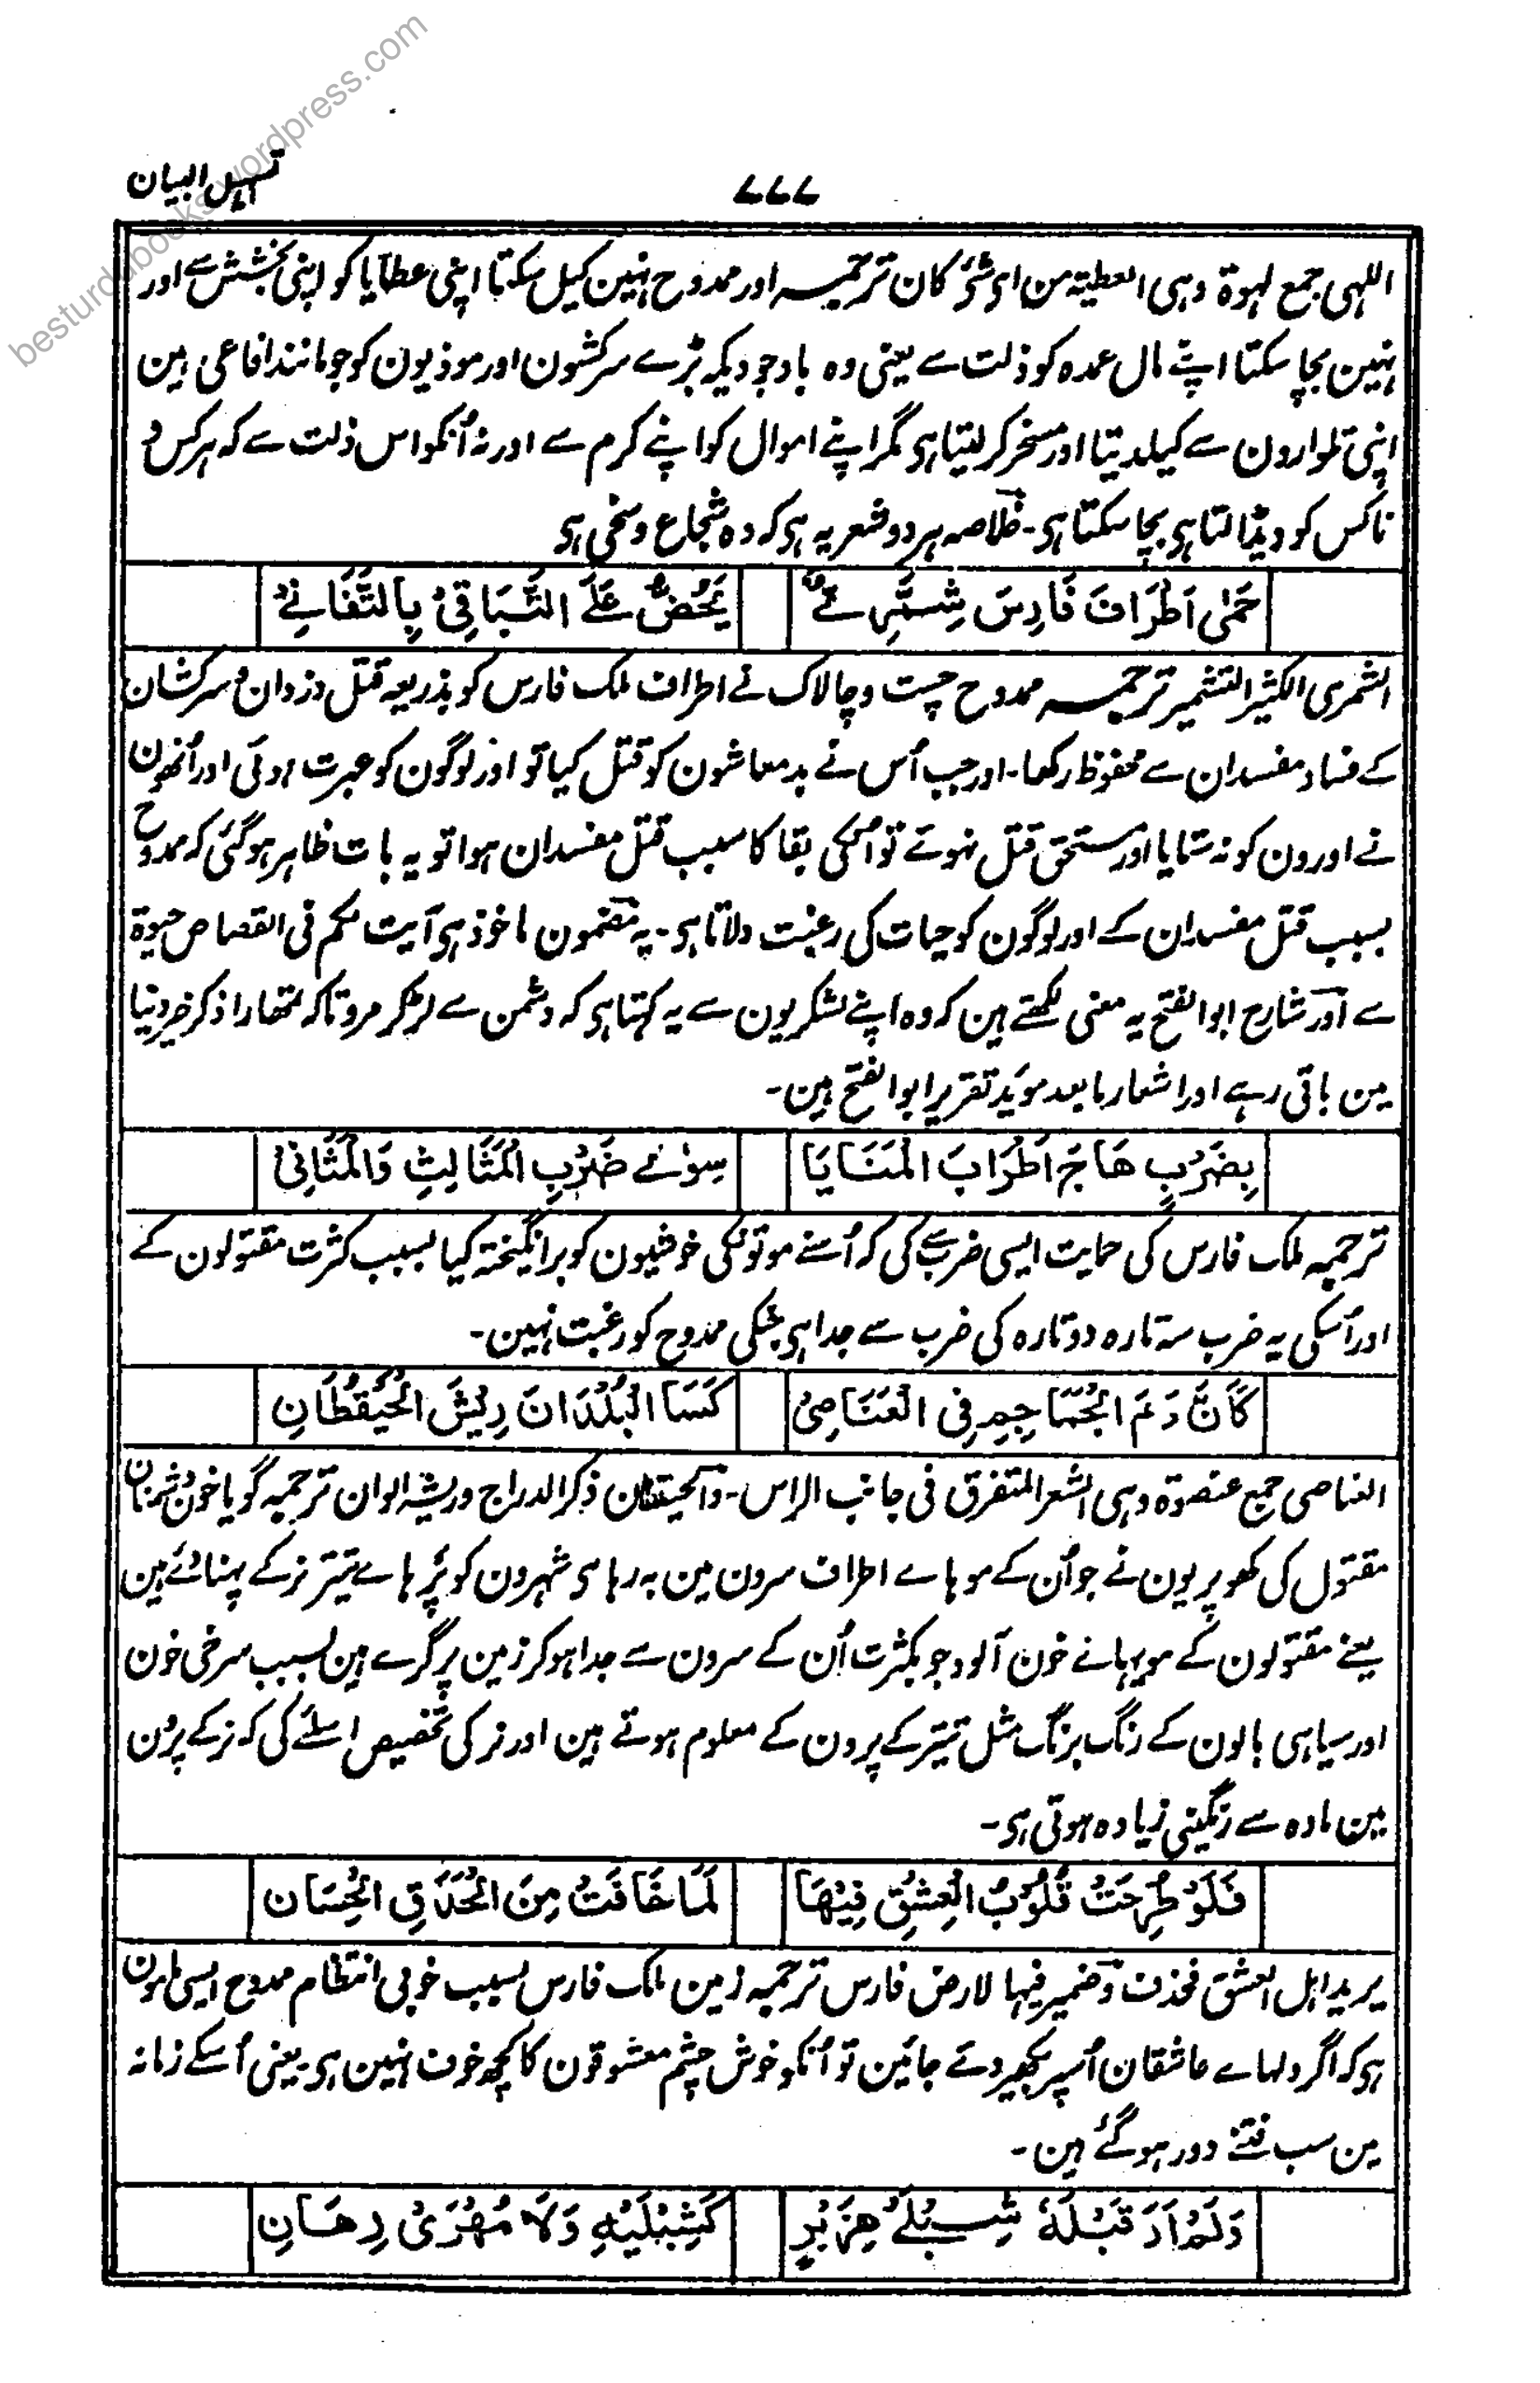 تسہیل البیان
۷۷۷
اللہی جمع لہوۃ وہی العطیۃ من ای شئ کان ترجمیہ اور ممدوح نہین کیل سکتا اپنی عطایا کو اپنی بخشش سے اور
نہین بچا سکتا اپنے مال عمدہ کو ذلت سے یعنی وہ باوجودیکہ بڑے سرکشون اور موذیون کو جو مانند افاعی ہین
اپنی تلوارون سے کیلدیتا اور مسخر کرلیتا ہی مگر اپنے اموال کو اپنے کرم سے اور نہ اُنکو اس ذلت سے کہ ہر کس و
ناکس کو دیڈالتا ہی بچا سکتا ہی۔ خلاصہ ہر دو شعر یہ ہی کہ وہ شجاع و سخی ہی
حَمٰی اَطْرَافَ فَارِسَ شِمَّرِیٌّ یَحُضُّ عَلَی التَّبَاقِیْ بِالتَّفَانِیْ
الشمری الکثیر التشمیر ترجمیہ ممدوح چست و چالاک نے اطراف ملک فارس کو بذریعہ قتل دزدان و سرکشان
کے فساد مفسدان سے محفوظ رکھا۔ اور جب اُس نے بدمعاشون کو قتل کیا تو اور لوگون کو عبرت ہوئی اور اُنھون
نے اورون کو نہ ستایا اور مستحق قتل نہوئے تو اُنکی بقا کا سبب قتل مفسدان ہوا تو یہ بات ظاہر ہوگئی کہ ممدوح
بسبب قتل مفسدان کے اور لوگون کو حیات کی رغبت دلاتا ہی۔ یہ مضمون ماخوذ ہی آیت لکم فی القصاص حیوۃ
سے اور شارح ابوالفتح یہ معنی لکھتے ہین کہ وہ اپنے لشکریون سے یہ کہتا ہی کہ دشمن سے لڑکر مرو تاکہ تمھارا ذکر خیر دنیا
مین باقی رہے اور اشعار مابعد موید تقریر ابوالفتح ہین۔
بِضَرْبٍ ھَاجَ اَطْرَابَ الْمَنَایَا سِوٰے ضَرْبِ الْمَثَالِثِ وَالْمَثَانِیْ
ترجمیہ ملک فارس کی حمایت ایسی ضرب سے کی کہ اُسنے موتونکی خوشیون کو برانگیختہ کیا بسبب کثرت مقتولون کے
اور اُسکی یہ ضرب ستارہ دوتارہ کی ضرب سے جدا ہی جنکی ممدوح کو رغبت نہین۔
کَاَنَّ دَمَ الْجُمَاجِمِ فِی الْعَنَاصِیْ کَسَا الْبُلْدَانَ رِیْشَ الْحَیْقُطَانِ
العناصی جمع عنصوۃ وہی الشعر المتفرق فی جانب الراس۔ والحیقطان ذکر الدراج وریشہ الوان ترجمیہ گویا خون دشمنان
مقتول کی کھوپریون نے جو اُن کے موہاے اطراف سرون مین بہ رہا ہی شہرون کو پَرہاے تیتر نر کے پہنائے ہین
یعنے مقتولون کے مویہائے خون آلود جو بکثرت اُن کے سرون سے جدا ہوکر زمین پر گرے ہین بسبب سرخی خون
اور سیاہی بالون کے رنگ برنگ مثل تیتر کے پرون کے معلوم ہوتے ہین اور نر کی تخصیص اسلئے کی کہ نر کے پرون
مین مادہ سے رنگینی زیادہ ہوتی ہی۔
فَلَوْ طُرِحَتْ قُلُوْبُ الْعِشْقِ فِیْھَا لَمَا خَافَتْ مِنَ الْحَدَقِ الْحِسَان
یرید اہل العشق فحذف وضمیر فیہا لارض فارس ترجمیہ زمین ملک فارس بسبب خوبی انتظام ممدوح ایسی مامون
ہی کہ اگر دلہاے عاشقان اُسپر بکھیر دئے جائین تو اُنکو خوش چشم معشوقون کا کچھ خوف نہین ہی۔ یعنی اُسکے زمانہ
مین سب فتنے دور ہوگئے ہین۔
وَلَمْ اَرَ قَبْلَہٗ شِبْلَےْ ھِزَبْرٍ کَشِبْلَیْہِ وَلَا مُھْرَیْ رِھَانِ
besturdubooks.wordpress.com